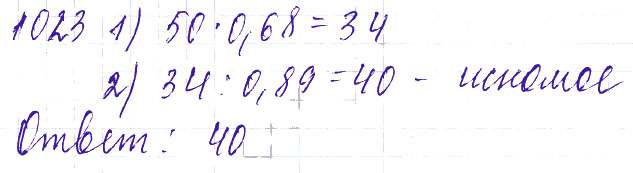 1023 1) 50 · 0,68 = 34
2) 34 : 0,89 = 40 - искомое
Ответ: 40